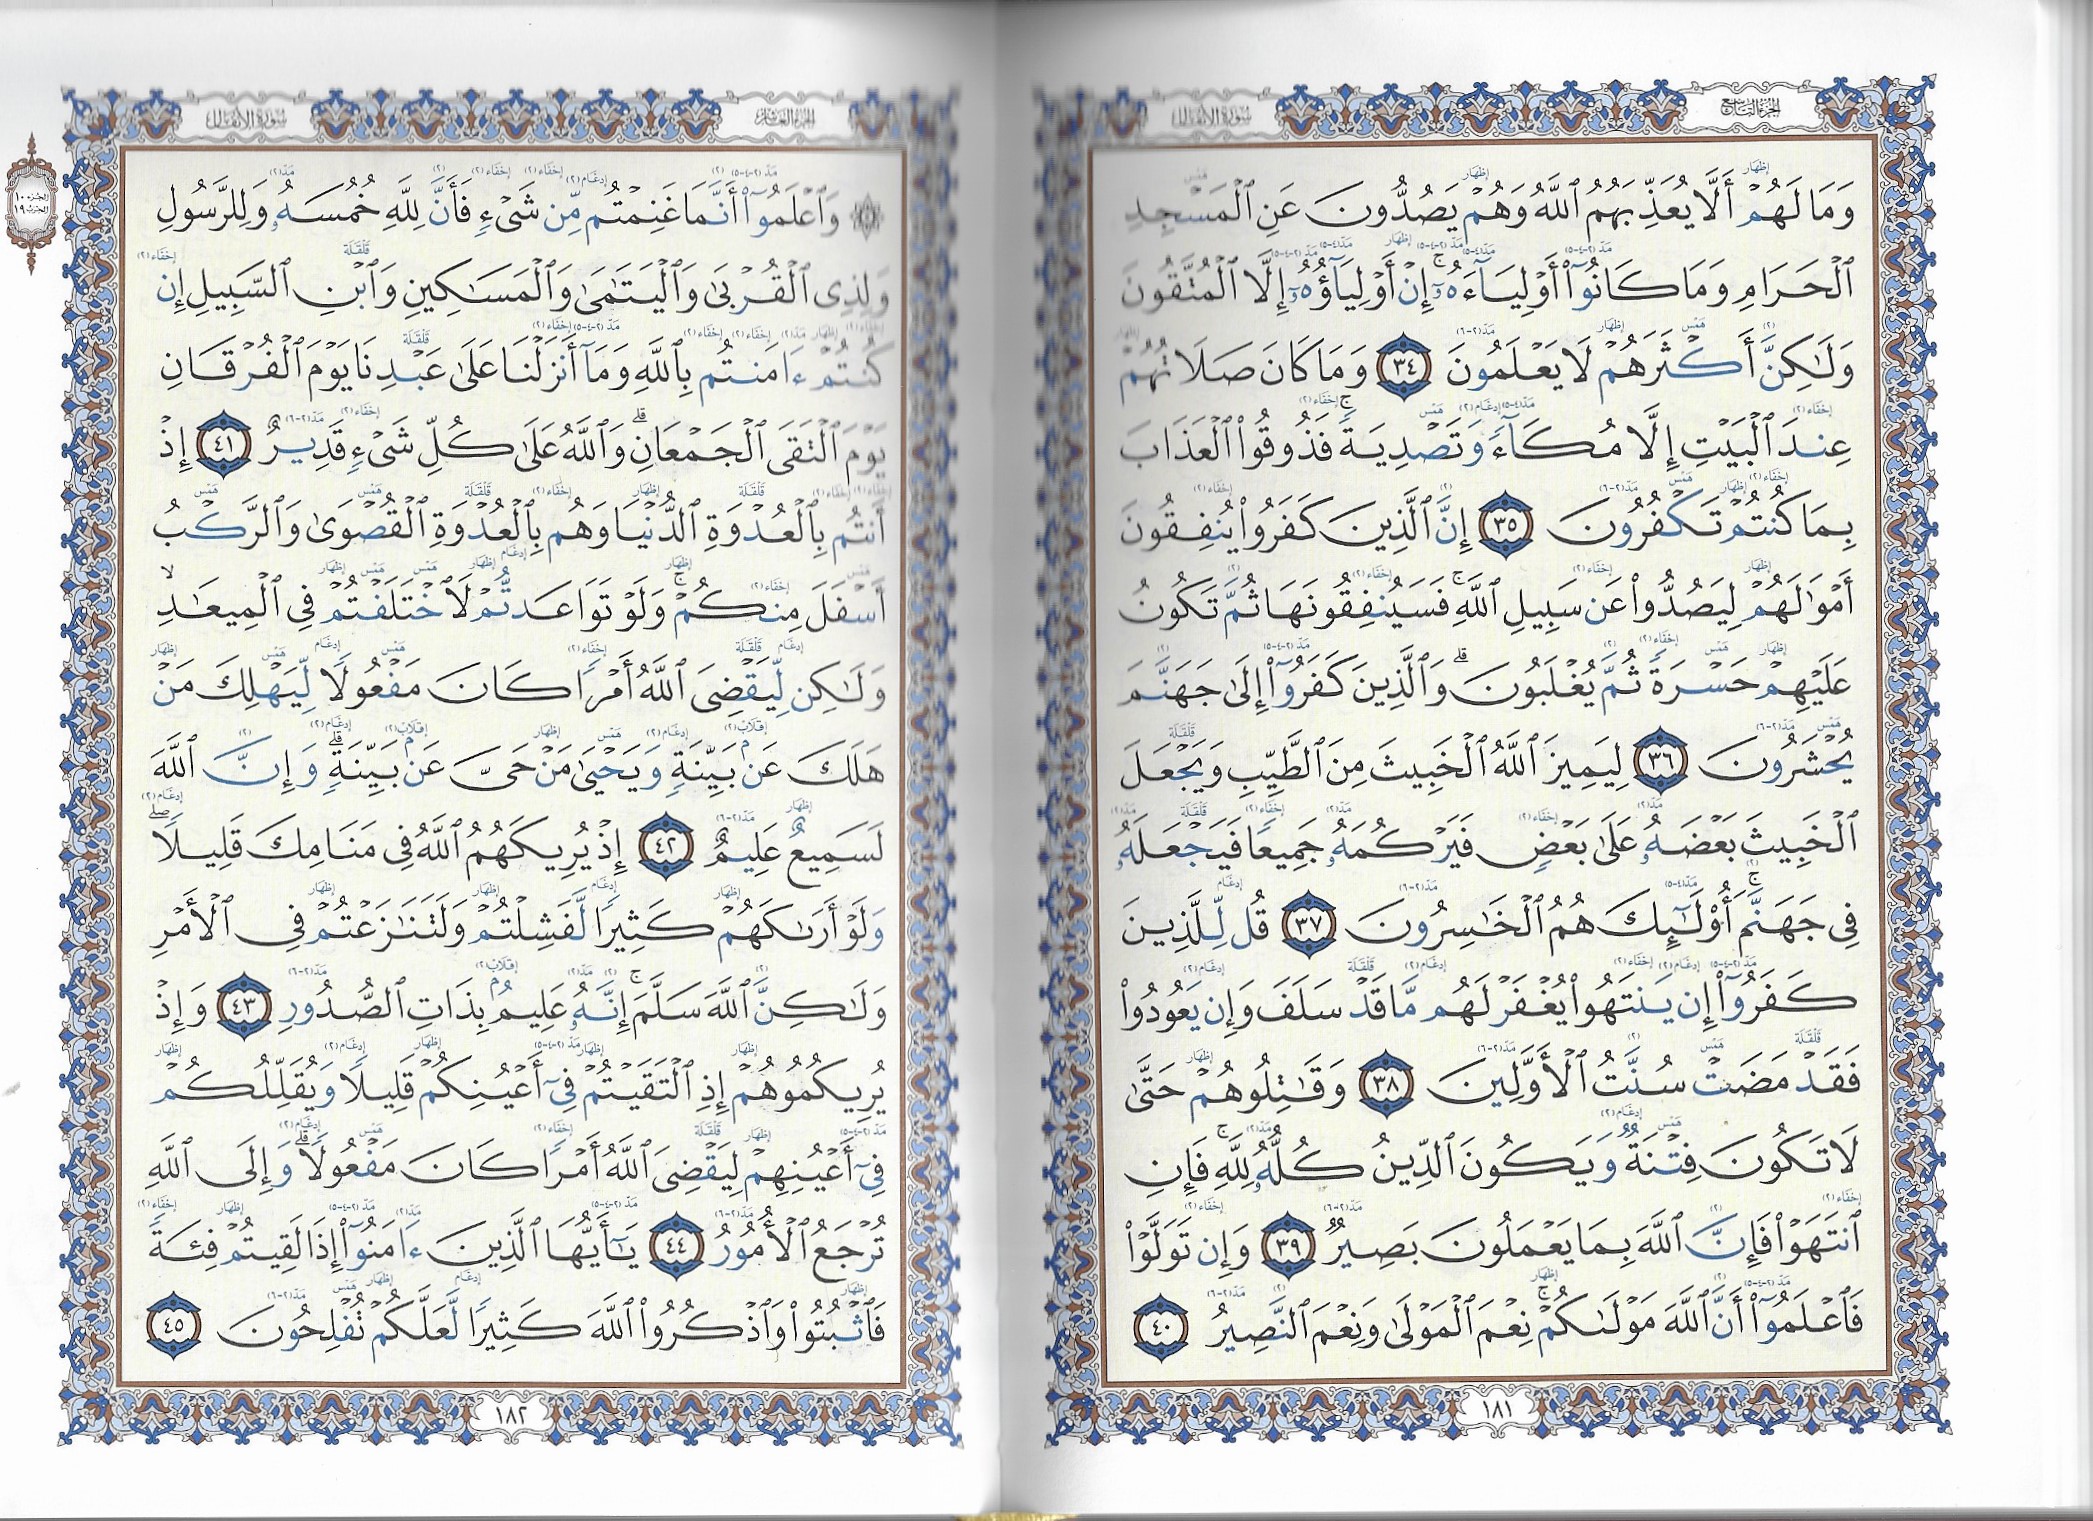 الجزء التاسع
سورة الأنفال
وَمَا لَهُمْ أَلَّا يُعَذِّبَهُمُ ٱللَّهُ وَهُمْ يَصُدُّونَ عَنِ ٱلْمَسْجِدِ
ٱلْحَرَامِ وَمَا كَانُوٓا۟ أَوْلِيَآءَهُۥٓ ۚ إِنْ أَوْلِيَآؤُهُۥٓ إِلَّا ٱلْمُتَّقُونَ
وَلَٰكِنَّ أَكْثَرَهُمْ لَا يَعْلَمُونَ ٣٤ وَمَا كَانَ صَلَاتُهُمْ
عِندَ ٱلْبَيْتِ إِلَّا مُكَآءً وَتَصْدِيَةً ۚ فَذُوقُوا۟ ٱلْعَذَابَ
بِمَا كُنتُمْ تَكْفُرُونَ ٣٥ إِنَّ ٱلَّذِينَ كَفَرُوا۟ يُنفِقُونَ
أَمْوَٰلَهُمْ لِيَصُدُّوا۟ عَن سَبِيلِ ٱللَّهِ ۚ فَسَيُنفِقُونَهَا ثُمَّ تَكُونُ
عَلَيْهِمْ حَسْرَةً ثُمَّ يُغْلَبُونَ ۗ وَٱلَّذِينَ كَفَرُوٓا۟ إِلَىٰ جَهَنَّمَ
يُحْشَرُونَ ٣٦ لِيَمِيزَ ٱللَّهُ ٱلْخَبِيثَ مِنَ ٱلطَّيِّبِ وَيَجْعَلَ
ٱلْخَبِيثَ بَعْضَهُۥ عَلَىٰ بَعْضٍ فَيَرْكُمَهُۥ جَمِيعًا فَيَجْعَلَهُۥ
فِى جَهَنَّمَ ۚ أُو۟لَٰٓئِكَ هُمُ ٱلْخَٰسِرُونَ ٣٧ قُل لِّلَّذِينَ
كَفَرُوٓا۟ إِن يَنتَهُوا۟ يُغْفَرْ لَهُم مَّا قَدْ سَلَفَ وَإِن يَعُودُوا۟
فَقَدْ مَضَتْ سُنَّتُ ٱلْأَوَّلِينَ ٣٨ وَقَٰتِلُوهُمْ حَتَّىٰ
لَا تَكُونَ فِتْنَةٌ وَيَكُونَ ٱلدِّينُ كُلُّهُۥ لِلَّهِ ۚ فَإِنِ
ٱنتَهَوْا۟ فَإِنَّ ٱللَّهَ بِمَا يَعْمَلُونَ بَصِيرٌ ٣٩ وَإِن تَوَلَّوْا۟
فَٱعْلَمُوٓا۟ أَنَّ ٱللَّهَ مَوْلَىٰكُمْ ۚ نِعْمَ ٱلْمَوْلَىٰ وَنِعْمَ ٱلنَّصِيرُ ٤٠
١٨١
الجزء العاشر
سورة الأنفال
الجزء ١٠
الحزب ١٩
۞ وَٱعْلَمُوٓا۟ أَنَّمَا غَنِمْتُم مِّن شَىْءٍ فَأَنَّ لِلَّهِ خُمُسَهُۥ وَلِلرَّسُولِ
وَلِذِى ٱلْقُرْبَىٰ وَٱلْيَتَٰمَىٰ وَٱلْمَسَٰكِينِ وَٱبْنِ ٱلسَّبِيلِ إِن
كُنتُمْ ءَامَنتُم بِٱللَّهِ وَمَآ أَنزَلْنَا عَلَىٰ عَبْدِنَا يَوْمَ ٱلْفُرْقَانِ
يَوْمَ ٱلْتَقَى ٱلْجَمْعَانِ ۗ وَٱللَّهُ عَلَىٰ كُلِّ شَىْءٍ قَدِيرٌ ٤١ إِذْ
أَنتُم بِٱلْعُدْوَةِ ٱلدُّنْيَا وَهُم بِٱلْعُدْوَةِ ٱلْقُصْوَىٰ وَٱلرَّكْبُ
أَسْفَلَ مِنكُمْ ۚ وَلَوْ تَوَاعَدتُّمْ لَٱخْتَلَفْتُمْ فِى ٱلْمِيعَٰدِ ۙ
وَلَٰكِن لِّيَقْضِىَ ٱللَّهُ أَمْرًا كَانَ مَفْعُولًا لِّيَهْلِكَ مَنْ
هَلَكَ عَنۢ بَيِّنَةٍ وَيَحْيَىٰ مَنْ حَىَّ عَنۢ بَيِّنَةٍ ۗ وَإِنَّ ٱللَّهَ
لَسَمِيعٌ عَلِيمٌ ٤٢ إِذْ يُرِيكَهُمُ ٱللَّهُ فِى مَنَامِكَ قَلِيلًا ۖ
وَلَوْ أَرَىٰكَهُمْ كَثِيرًا لَّفَشِلْتُمْ وَلَتَنَٰزَعْتُمْ فِى ٱلْأَمْرِ
وَلَٰكِنَّ ٱللَّهَ سَلَّمَ ۗ إِنَّهُۥ عَلِيمٌۢ بِذَاتِ ٱلصُّدُورِ ٤٣ وَإِذْ
يُرِيكُمُوهُمْ إِذِ ٱلْتَقَيْتُمْ فِىٓ أَعْيُنِكُمْ قَلِيلًا وَيُقَلِّلُكُمْ
فِىٓ أَعْيُنِهِمْ لِيَقْضِىَ ٱللَّهُ أَمْرًا كَانَ مَفْعُولًا ۗ وَإِلَى ٱللَّهِ
تُرْجَعُ ٱلْأُمُورُ ٤٤ يَٰٓأَيُّهَا ٱلَّذِينَ ءَامَنُوٓا۟ إِذَا لَقِيتُمْ فِئَةً
فَٱثْبُتُوا۟ وَٱذْكُرُوا۟ ٱللَّهَ كَثِيرًا لَّعَلَّكُمْ تُفْلِحُونَ ٤٥
١٨٢